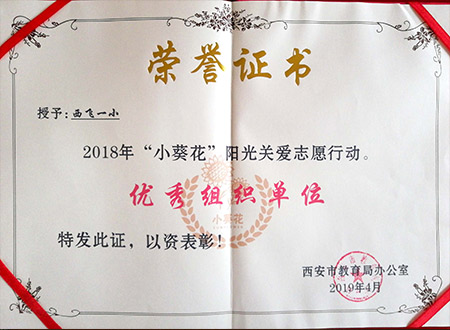 荣誉证书
授予：西飞一小
2018年“小葵花”阳光关爱志愿行动。
优秀组织单位
小葵花
特发此证，以资表彰！
西安市教育局办公室
2019年4月